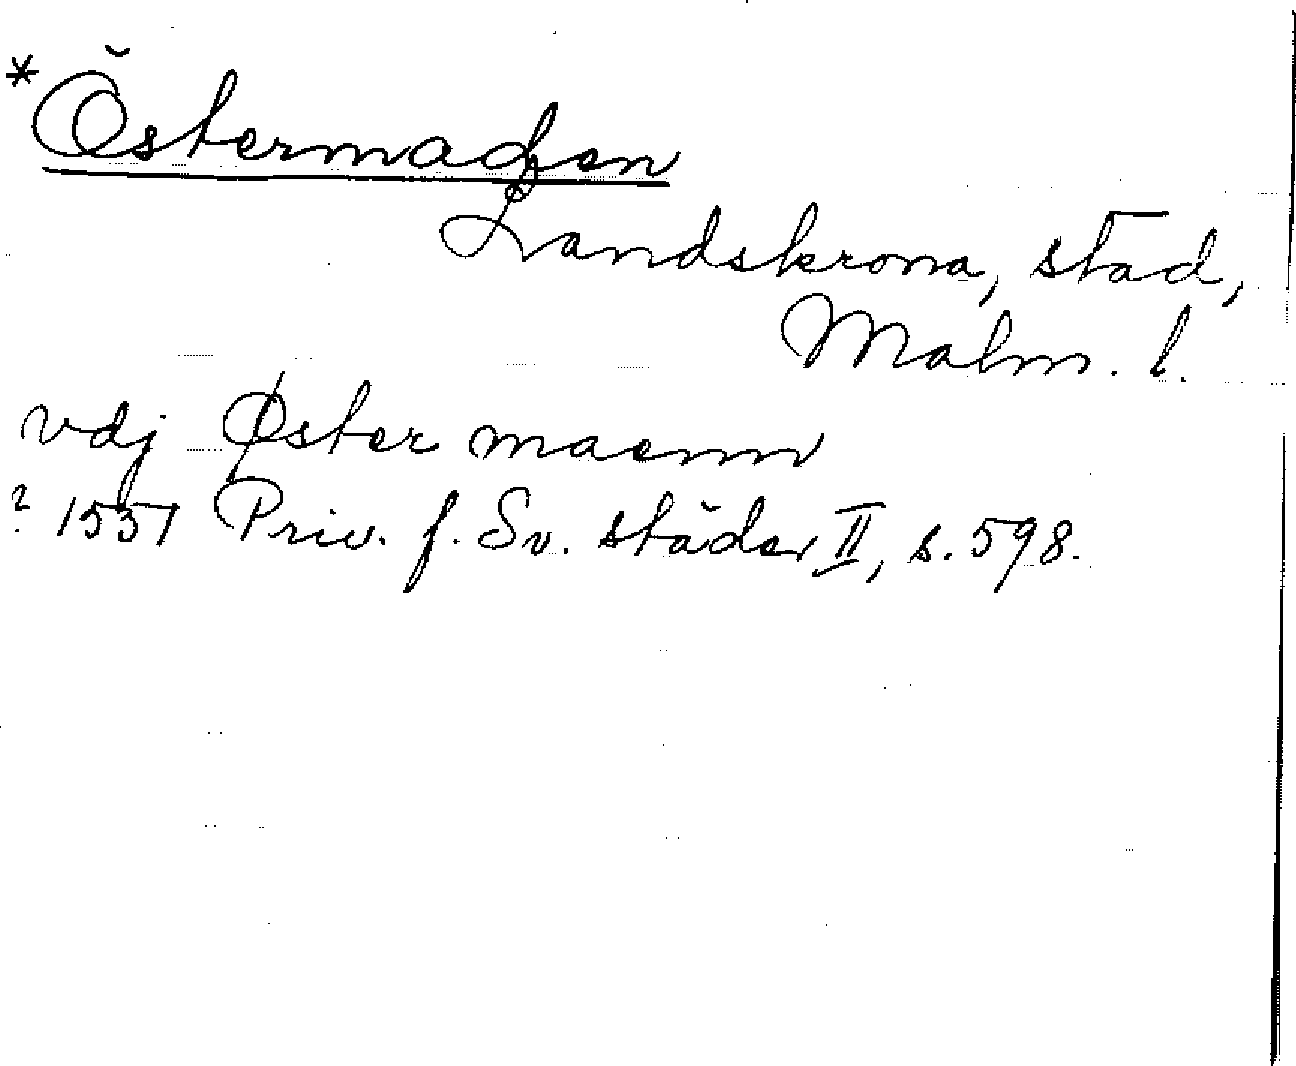 *Östermaden
Landskrona, stad,
Malm. l.
vdj Øster maenn
? 1551 Priv. f. Sv. städer II, s. 598.